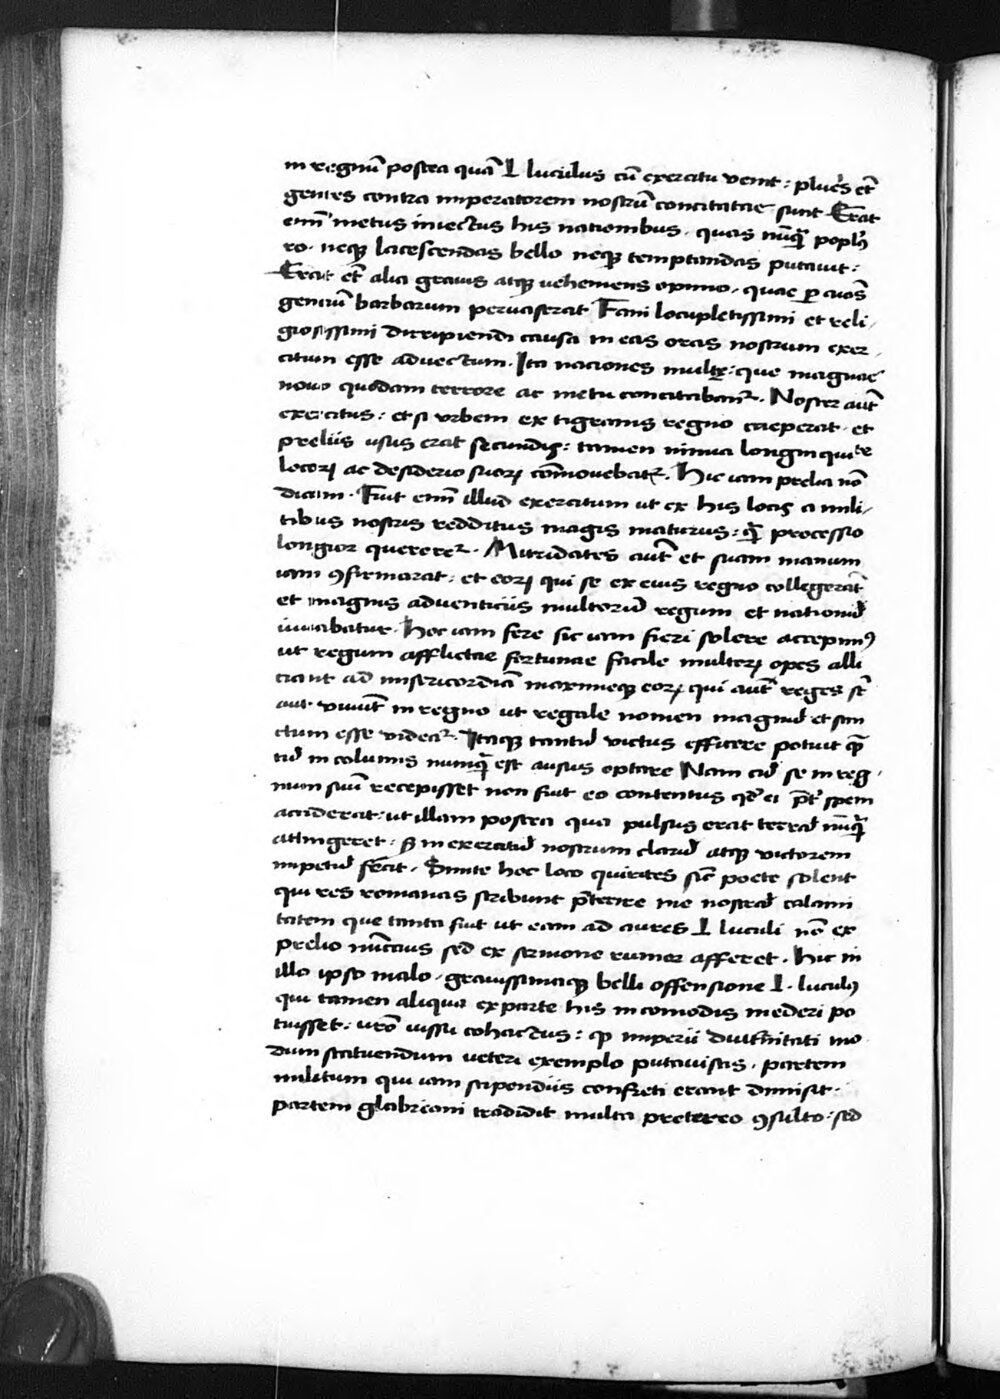 in regnũ postea quã L lucullus cũ exercitu venit : plures et̃
gentes contra imperatorem nostrũ concitatae sunt Erat
enĩ metus iniectus his nationibus . quas nũq̃ popl's
ro . neq; lacescendas bello neq; temptandas putauit :
Erat et̃ alia grauis atq; vehemens opinio . quae p aĩos
gentiũ barbarum peruaserat Fani locupletissimi et reli
giosissimi diripiendi causa in eas oras nostrum exer
citum esse aduectum . Ita naciones multę : que magnae
nouo quodam terrore ac metu concitabant᷑ . Noster aut̃
exercitus : etsi vrbem ex tigranis regno caeperat . et
preliis usus erat secundis : tamen nimia longinquite
locoꝝ ac desiderio suoꝝ cõmouebat᷑ . Hic iam prelia nõ
dicam . Fuit enĩ illud exercitum ut ex his locis a mili
tibus nostris redditus magis maturus : q̃ processio
longior quereret᷑ . Mitridates aut̃ et suam manum
iam ꝯfirmarat : et eoꝝ qui se ex eius regno collegerãt
et magnis aduenticiis multorũ regum et nationũ
iuuabatur . Hoc iam fere sic iam fieri solere accepimꝰ
ut regum afflictae fortunae facile multoꝝ opes alli
ciant ad misericordiã maximeq; eoꝝ qui aut̃ reges sт̃
aut viuũt in regno ut regale nomen magnũ et san
ctum esse videat᷑ . Itaq; tantũ victus efficere potuit q̃
tũ incolumis nunq̃ est ausus optare Nam cũ se in reg
num suũ recepisset non fuit eo contentus qđ ei p̃t spem
acciderat : ut illam postea qua pulsus erat terrã nũq̃
attingeret : s̃ in exercitũ nostrum clarũ atq; victorem
impetũ fecit . Sinite hoc loco quirites sic̃ poete solent
qui res romanas scribunt p̃terire me nostrã calami
tatem que tanta fuit ut eam ad aures L luculi nõ ex
prelio nũcius sed ex sermone rumor afferet . Hic in
illo ipso malo . grauissimaq; belli offensione L . lucullꝰ
qui tamen aliqua ex parte his incomodis mederi po
tuisset : vrõ iussu cohactus : qp imperii diuturnitati mo
dum statuendum veteri exemplo putauistis . partem
militum qui iam stipendiis confecti erant dimisit .
partem glabrioni tradidit multa pretereo ꝯsulto : sed